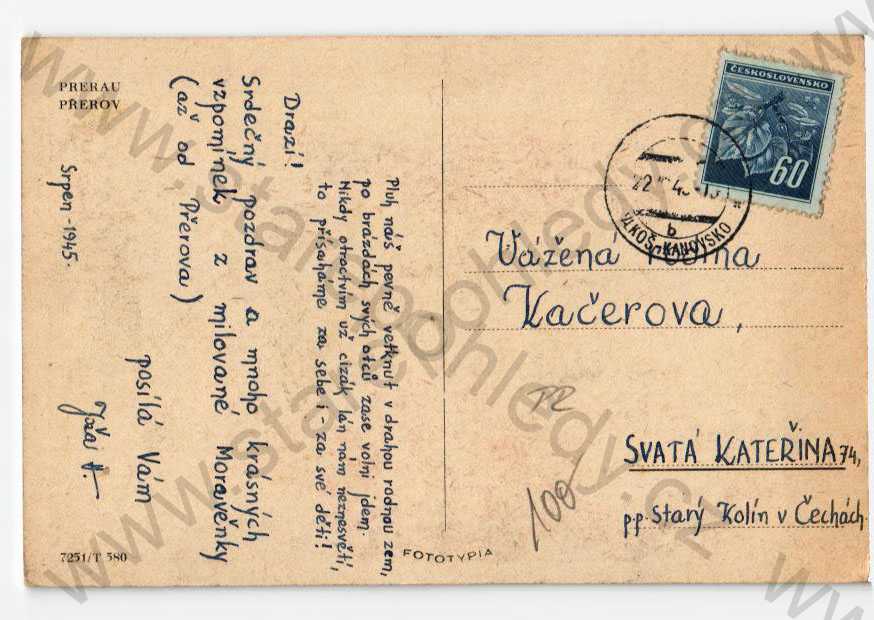 PRERAU
PŘEROV
Drazí!
Srdečný pozdrav a mnoho krásných
vzpomínek z milované Moravěnky
(až od Přerova)
posílá Vám
Srpen - 1945.
Pluh náš pevně vetknut v drahou rodnou zem,
po brázdách svých otců zase volni jdem.
Nikdy otroctvím už cizák lán nám neznesvětí,
to přísaháme za sebe i - za své děti!
7251/T 580
FOTOTYPIA
ČESKOSLOVENSKO
60
VLKOŠ-KANOVSKO
b
Vážená rodina
Kačerova,
SVATÁ KATEŘINA 74,
p.p. Starý Kolín v Čechách
100
www.starepohledy.cz